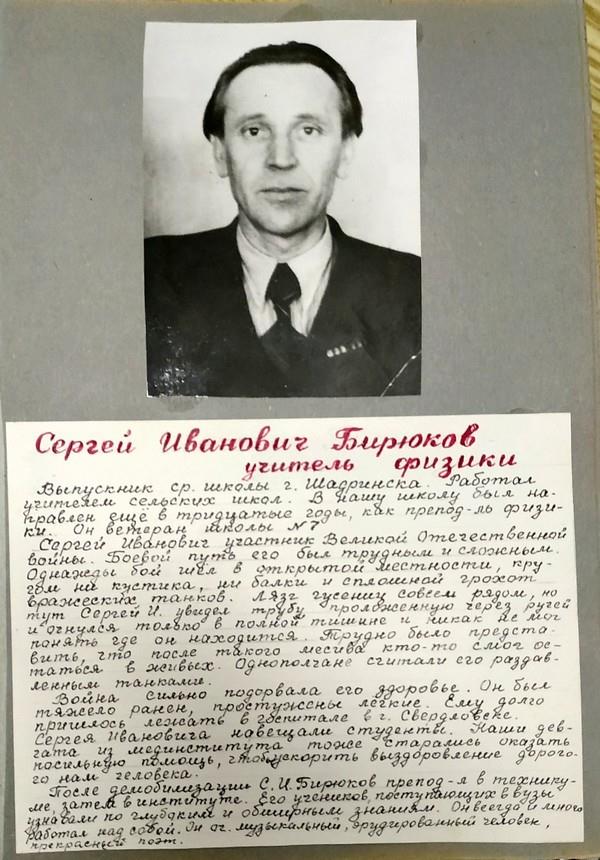 Сергей Иванович Бирюков
учитель физики
Выпускник ср. школы г. Шадринска. Работал
учителем сельских школ. В нашу школу был на-
правлен ещё в тридцатые годы, как препод-ль физи-
ки. Он ветеран школы №7
Сергей Иванович участник Великой Отечественной
войны. Боевой путь его был трудным и сложным.
Однажды бой шёл в открытой местности, кру-
гом ни кустика, ни балки и сплошной грохот
вражеских танков. Лязг гусениц совсем рядом, но
тут Сергей И. увидел трубу, проложенную через ручей
и очнулся только в полной тишине и никак не мог
понять где он находится. Трудно было предста-
вить, что после такого месива кто-то смог ос-
таться в живых. Однополчане считали его раздав-
ленным танками.
Война сильно подорвала его здоровье. Он был
тяжело ранен, простужены лёгкие. Ему долго
пришлось лежать в госпитале в г. Свердловске.
Сергея Ивановича навещали студенты. Наши дев-
чата из мединститута тоже старались оказать
посильную помощь, чтобы ускорить выздоровление дорого-
го нам человека.
После демобилизации С.И.Бирюков препод-л в технику-
ме, затем в институте. Его учеников, поступающих в вузы
узнавали по глубоким и обширным знаниям. Он всегда и много
работал над собой. Он оч. музыкальный, эрудированный человек,
прекрасный поэт.